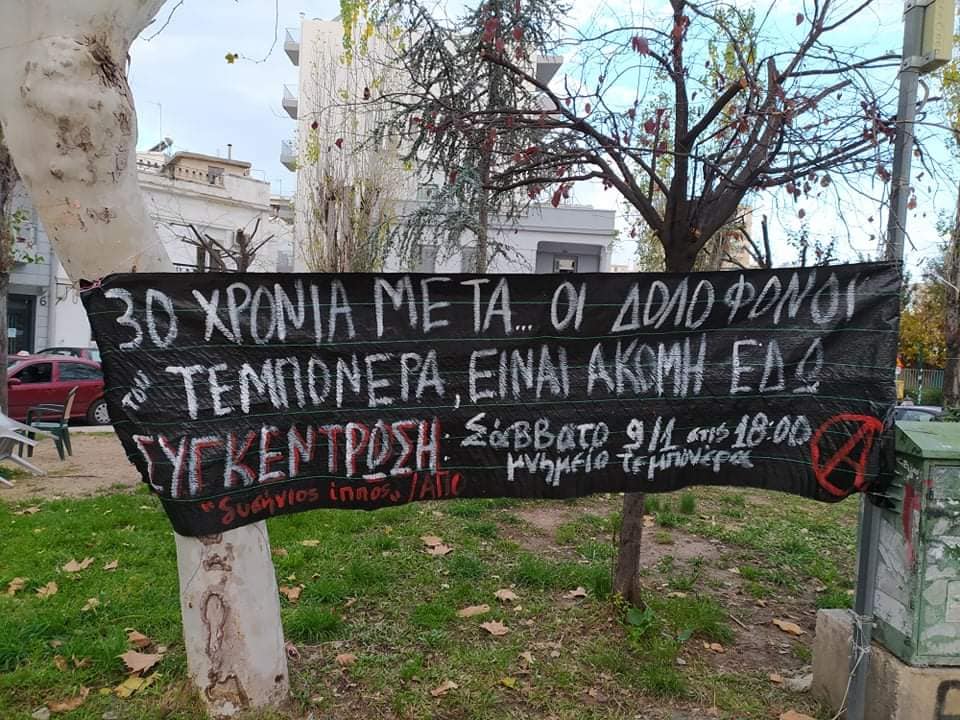 30 ΧΡΟΝΙΑ ΜΕΤΑ... ΟΙ ΔΟΛΟΦΟΝΟΙ
του ΤΕΜΠΟΝΕΡΑ, ΕΙΝΑΙ ΑΚΟΜΗ ΕΔΩ
ΣΥΓΚΕΝΤΡΩΣΗ: Σάββατο 9/1 στις 18:00
μνημείο τεμπονέρα
"δυσήνιος ίππος" / ΑΠΟ